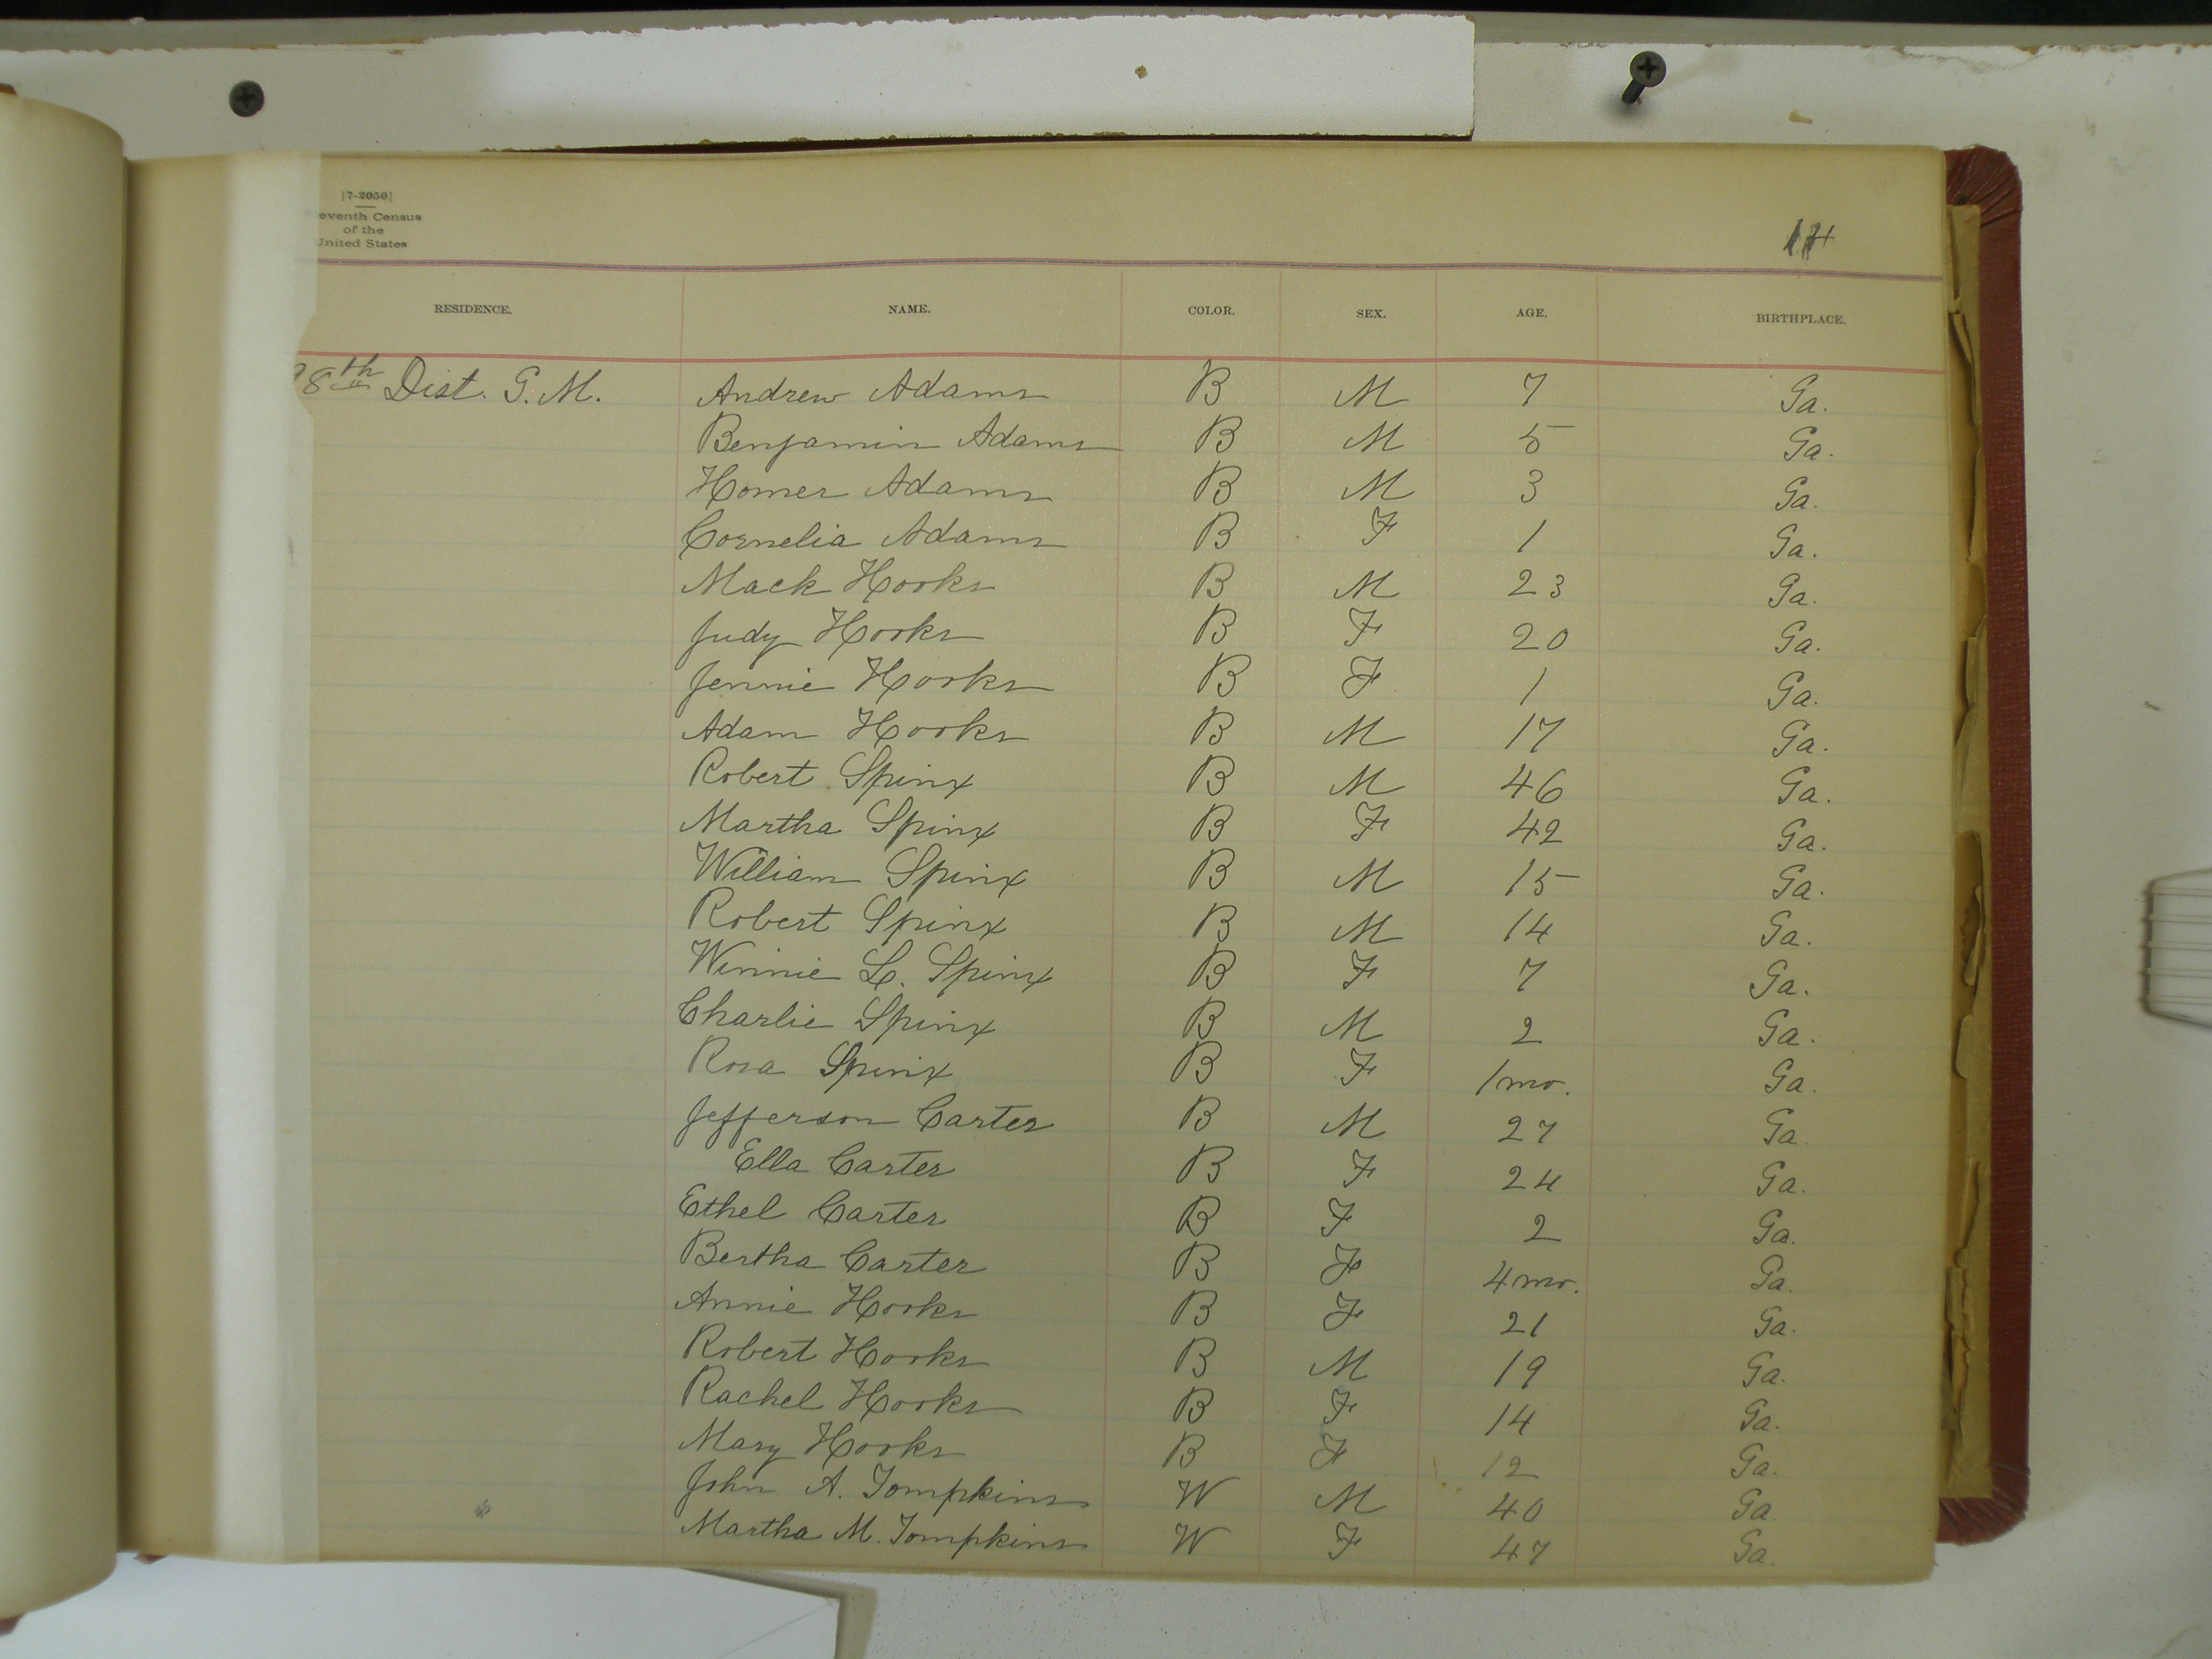 [7-2050]
eventh Census
of the
United States
14
RESIDENCE. NAME. COLOR. SEX. AGE. BIRTHPLACE.
98th Dist. G. M. Andrew Adams B M 7 Ga.
Benjamin Adams B M 5 Ga.
Homer Adams B M 3 Ga.
Cornelia Adams B F 1 Ga.
Mack Hooks B M 23 Ga.
Judy Hooks B F 20 Ga.
Jennie Hooks B F 1 Ga.
Adam Hooks B M 17 Ga.
Robert Spinx B M 46 Ga.
Martha Spinx B F 42 Ga.
William Spinx B M 15 Ga.
Robert Spinx B M 14 Ga.
Winnie L. Spinx B F 7 Ga.
Charlie Spinx B M 2 Ga.
Rosa Spinx B F 1mo. Ga.
Jefferson Carter B M 27 Ga.
Ella Carter B F 24 Ga.
Ethel Carter B F 2 Ga.
Bertha Carter B F 4mo. Ga.
Annie Hooks B F 21 Ga.
Robert Hooks B M 19 Ga.
Rachel Hooks B F 14 Ga.
Mary Hooks B F 12 Ga.
John A. Tompkins W M 40 Ga.
Martha M. Tompkins W F 47 Ga.